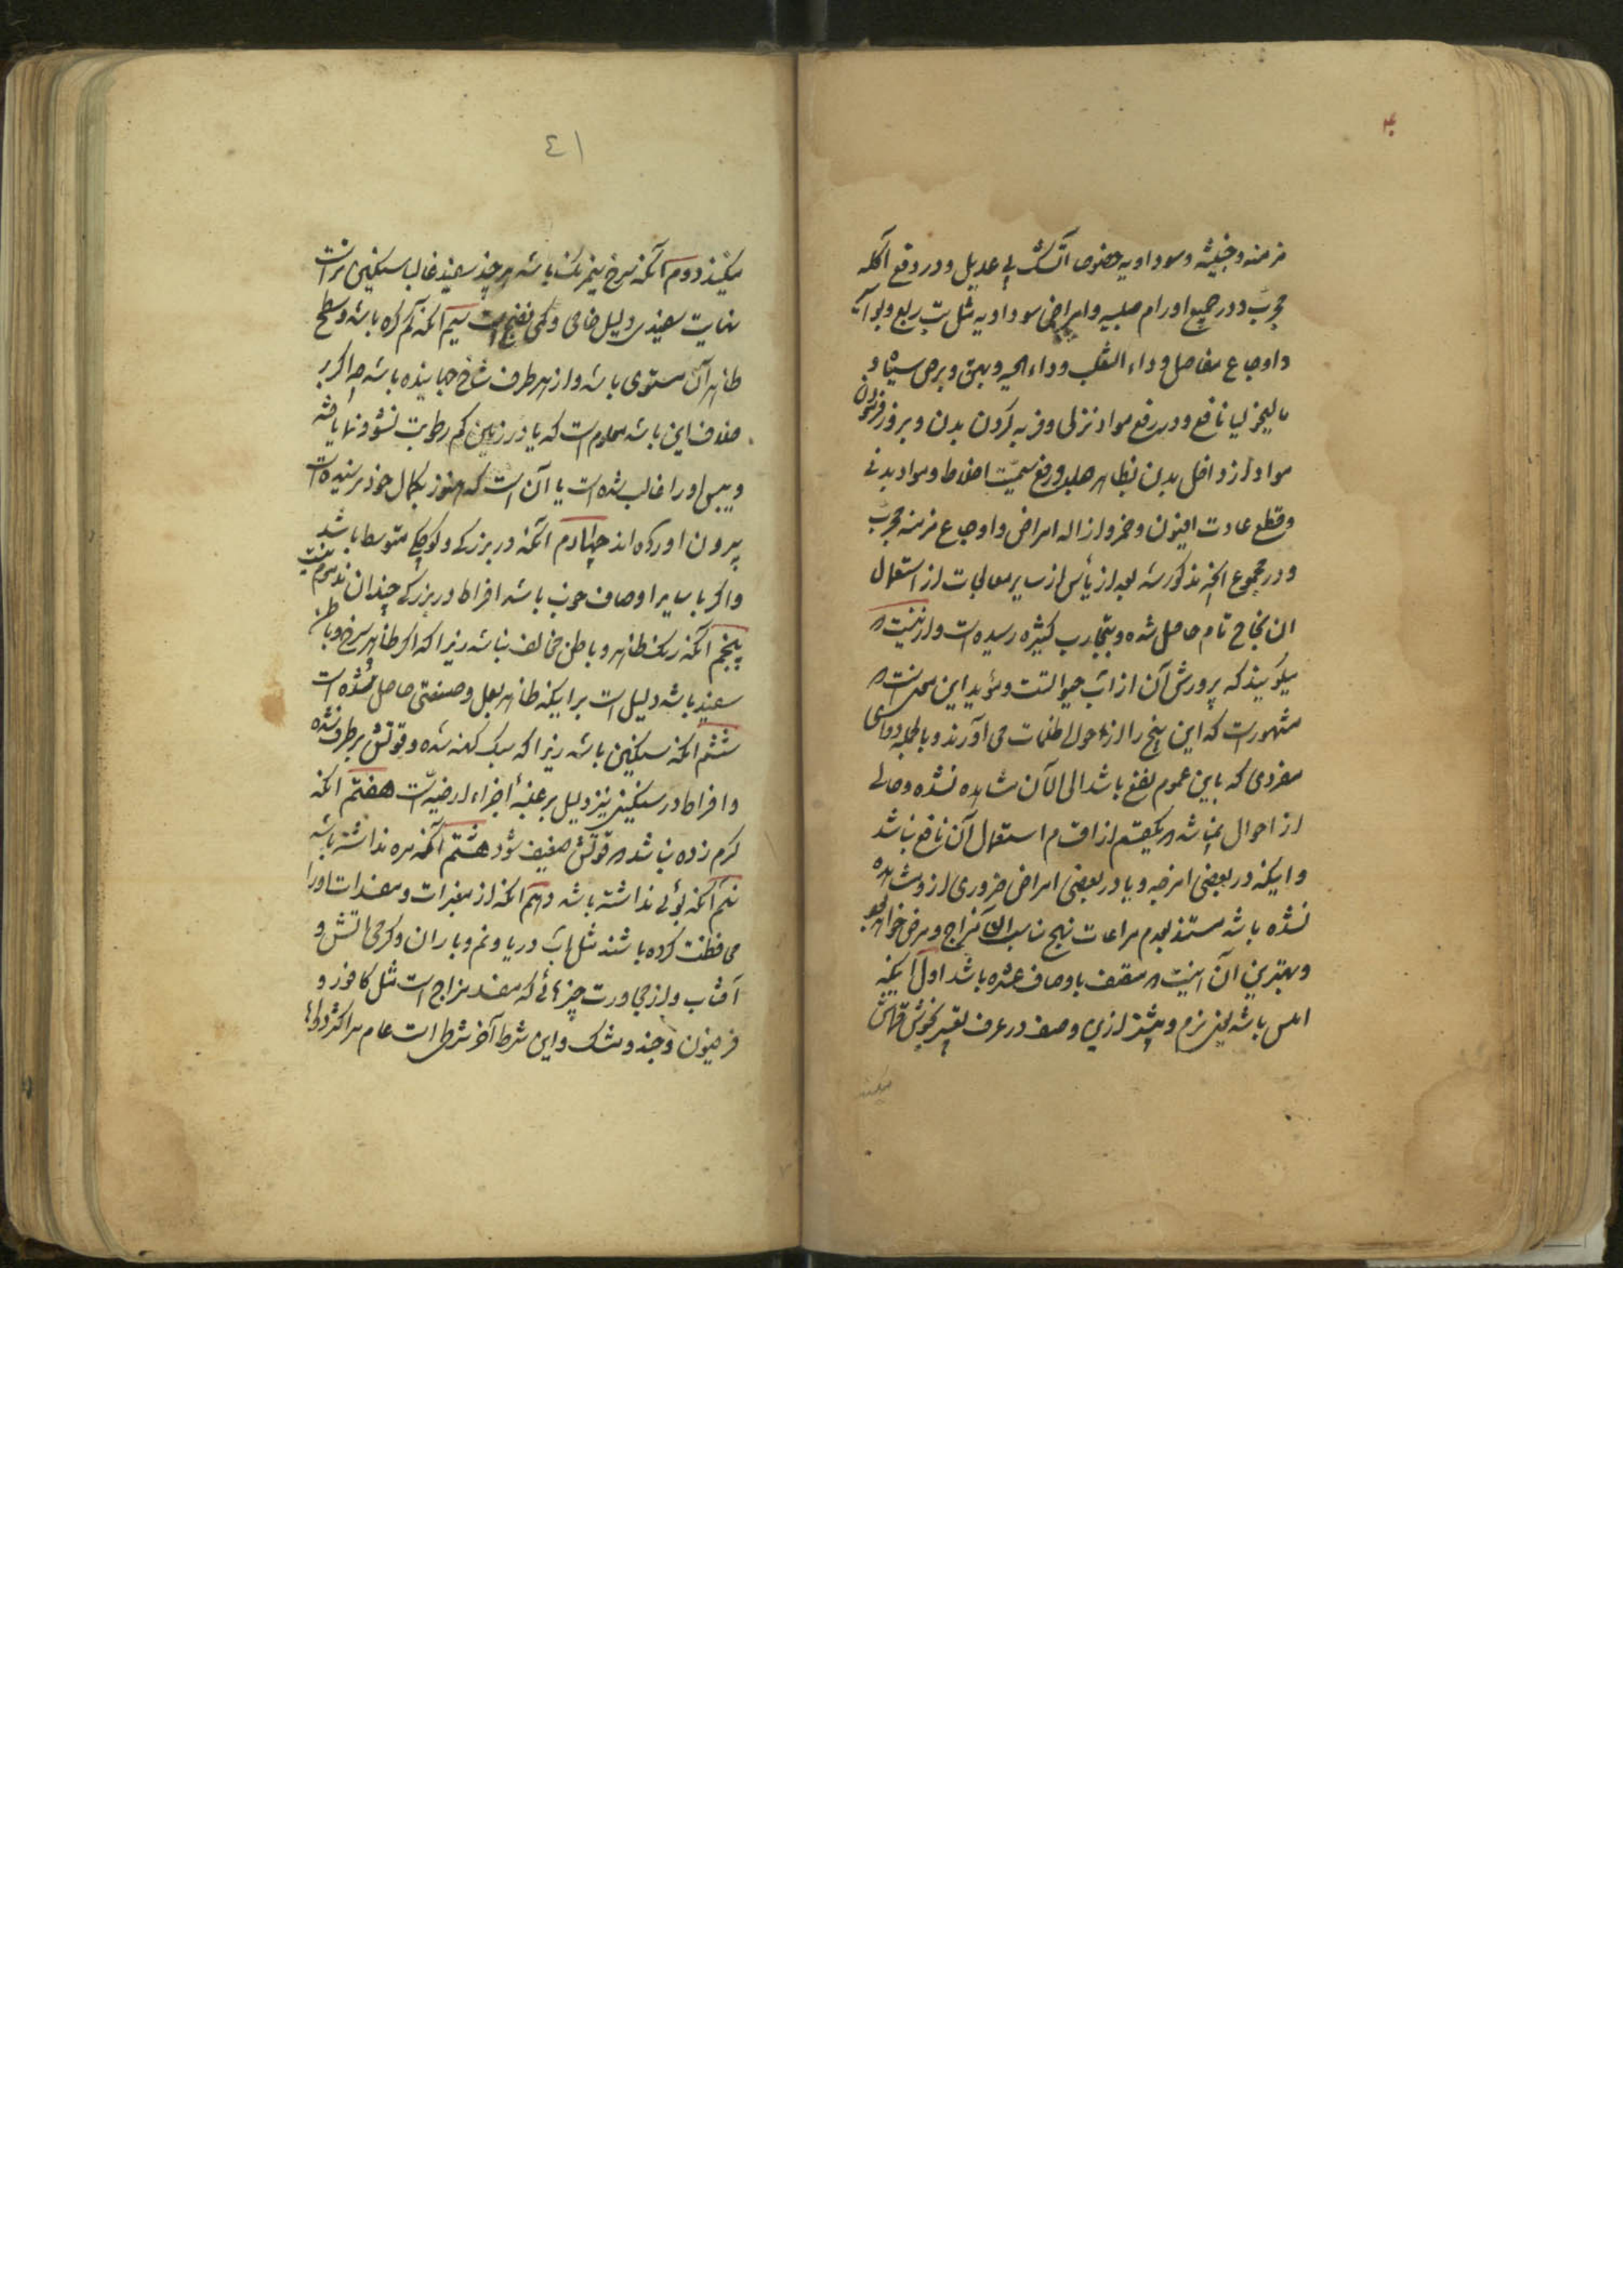 مزمنه و خبیثه و سوداویه خصوصا آتشک بی عدیل و در دفع آکله
مجرب و در جمیع اورام صلبیه و امراض سوداویه مثل تب ربع و بواسیر
و اوجاع مفاصل و داء الثعلب و داء الحیه و بهق و برص سیاه و
مالیخولیا نافع و در رفع مواد نزلی و فربه کردن بدن و بروز فرمودن
مواد از داخل بدن بظاهر جلد و رفع سمیت اخلاط و مواد بدنی
و قطع عادت افیون و خمر و ازاله امراض و اوجاع مزمنه مجرب
و در مجموع آنچه مذکور شد بعد از یأس از سایر معالجات از استعمال
ان نجاح تام حاصل شده و بتجارب کثیره رسیده است و از
میگویند که پرورش آن از آب حیوانست و مؤید این سخن انست که
مشهور است که این بیخ را از حوالی ظلمات می آورند و بالجمله دوای
مفردی که باین عموم نفع باشد الی الآن مشاهده نشده و حالی
از احوال نمیباشد که بیکقسم از اقسام استعمال آن نافع نباشد
و اینکه در بعضی امزجه و یا در بعضی امراض ضرری از و مشاهده
نشده باشد مستند بعدم مراعات نهج مناسب آن مزاج و مرض خواهد بود
و بهترین آن اینست که متصف باوصاف عشره باشد اول اینکه
املس باشد یعنی نرم و بیشتر ازین وصف در عرف تعبیر بخوش قماش
میکنند
٤١
میکنند دوم آنکه سرخ نیمرنگ باشد هر چند سفید غالبا سنگین تر است
نهایت سفیدی دلیل خامی و کمی نضج است سیم آنکه کم گره باشد و سطح
ظاهر آن مستوی باشد و از هر طرف شاخ جهانیده باشد چه اگر بر
خلاف این باشد معلوم است که یا در زمین کم رطوبت نشو و نما یافته
و یبس او را غالب شده است یا آن است که هنوز بکمال خود نرسیده است
بیرون آورده اند چهارم آنکه در بزرگی و کوچکی متوسط باشد
و اگر با سایر اوصاف خوب باشد افراط در بزرگی چندان مذموم نیست
پنجم آنکه رنگ ظاهر و باطن مخالف نباشد زیرا که اگر ظاهر سرخ و باطن
سفید باشد دلیل است بر اینکه ظاهر بعمل و صنعتی حاصل شده است
ششم آنکه سنگین باشد زیرا که سبک کهنه شده و قوتش برطرف شده
و افراط در سنگینی نیز دلیل بر غلبهٔ اجزاء ارضیه است هفتم آنکه
کرم زده نباشد که قوتش ضعیف شود هشتم آنکه مزه نداشته باشد
نهم آنکه بوئی نداشته باشد دهم آنکه از مغیرات و مفسدات او را
محافظت کرده باشند مثل آب دریا و نم و باران و گرمی آتش و
آفتاب و از مجاورت چیزهائی که مفسد مزاج است مثل کافور و
فرفیون و جند و مشک و این شرط آخر شرطی است عام مر اکثر دواها